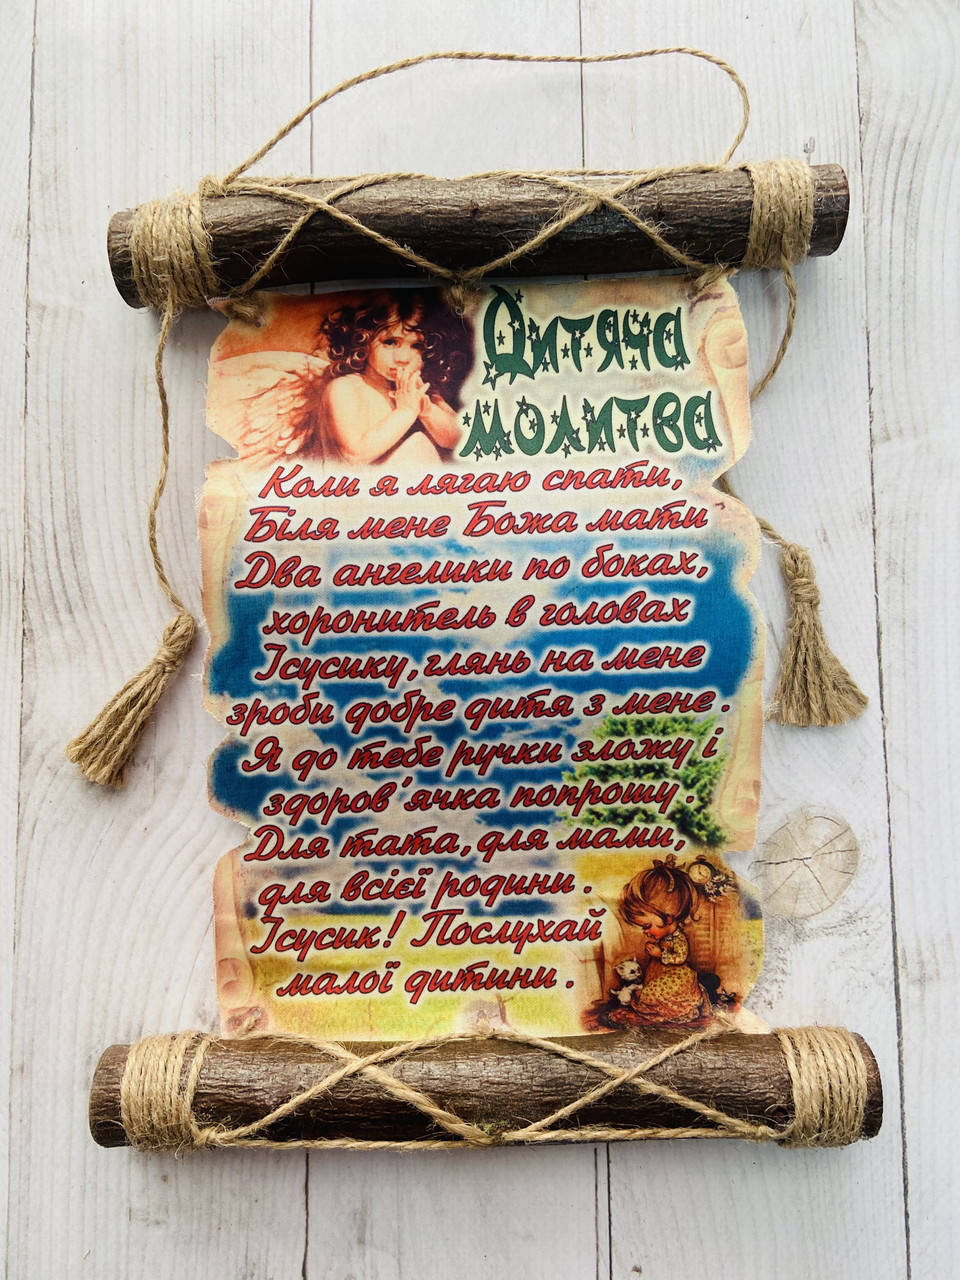 Дитяча
молитва
Коли я лягаю спати,
Біля мене Божа мати
Два ангелики по боках,
хоронитель в головах
Ісусику, глянь на мене
зроби добре дитя з мене.
Я до тебе ручки зложу і
здоров'ячка попрошу.
Для тата, для мами,
для всієї родини.
Ісусик! Послухай
малої дитини.